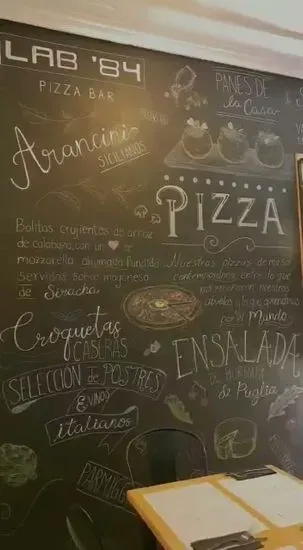 LAB '84
PIZZA BAR
Arancinis
SICILIANOS
Bolitas crujientes de arroz
de calabaza, con un ♥ de
mozzarella ahumada fundida
servidas sobre mayonesa
de Siracha
Croquetas
CASERAS
SELECCIÓN de POSTRES
& VINOS
italianos
PANES DE
la Casa
PIZZA
Nuestras pizzas de masa
contemporánea, entre lo que
nos enseñaron nuestros
abuelos y lo que aprendimos
por el Mundo
ENSALADA
DE BURRATA
de Puglia